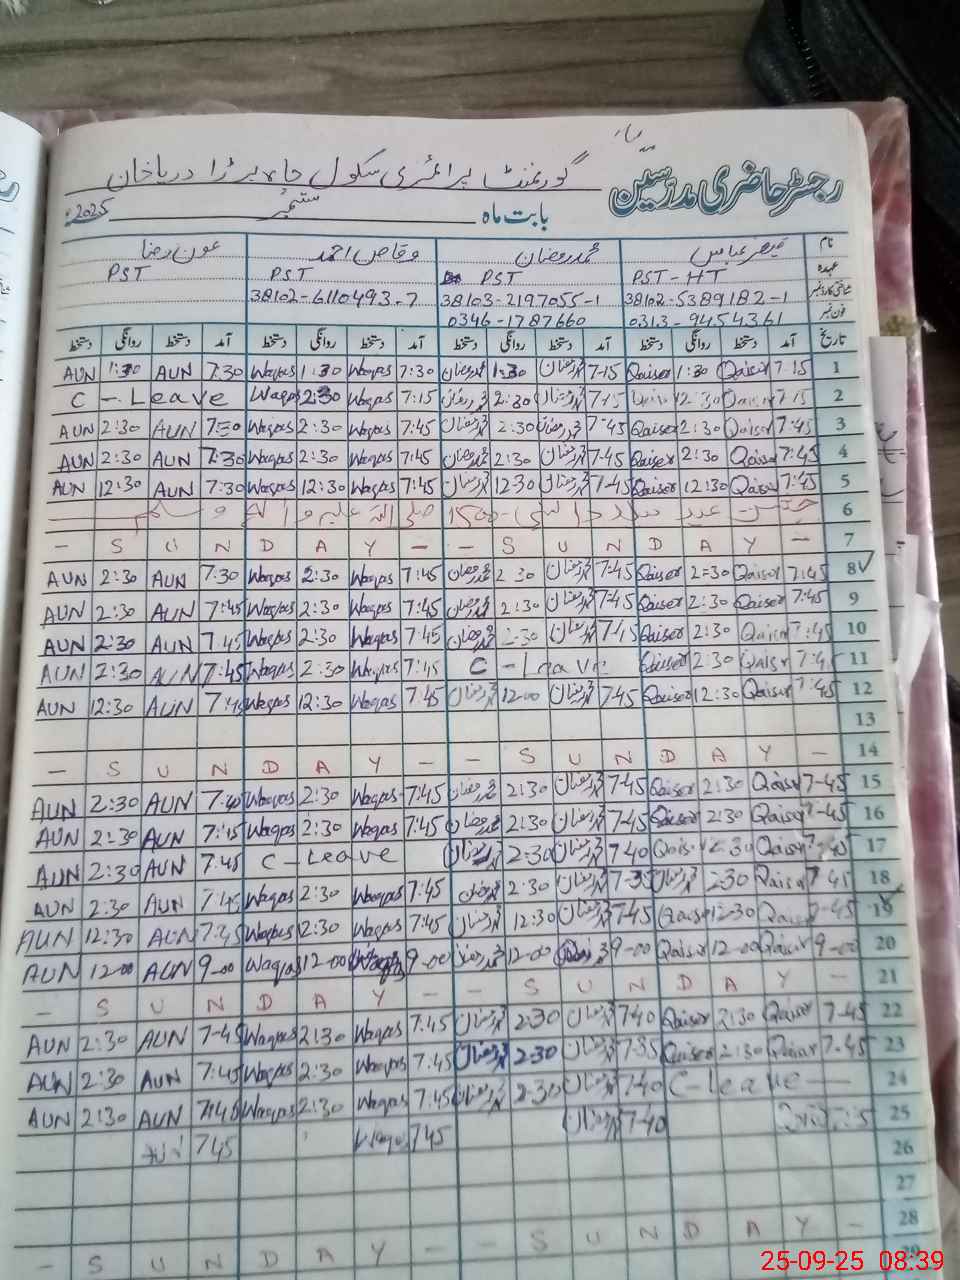 رجسٹر حاضری مدرسین
گورنمنٹ پرائمری سکول چاہ بڑا دریاخان
بابت ماہ ستمبر 2025ء
نام قیصر عباس محمد رمضان وقاص احمد عون رضا
عہدہ PST-HT PST PST PST
شناختی کارڈ نمبر 38102-5389182-1 38103-2197055-1 38102-6110493-7
فون نمبر 0313-9454361 0346-1787660
تاریخ آمد دستخط روانگی دستخط آمد دستخط روانگی دستخط آمد دستخط روانگی دستخط آمد دستخط روانگی دستخط
AUN 1:30 AUN 7:30 Waqas 1:30 Waqas 7:30 محمد رمضان 1:30 محمد رمضان 7-15 Qaiser 1:30 Qaiser 7-15 1
C - Leave Waqas 2:30 Waqas 7:15 محمد رمضان 2:30 محمد رمضان 7-15 2:30 Qaiser 7-15 2
AUN 2:30 AUN 7:30 Waqas 2:30 Waqas 7:45 محمد رمضان 2:30 محمد رمضان 7-45 Qaiser 2:30 Qaiser 7:45 3
AUN 2:30 AUN 7:30 Waqas 2:30 Waqas 7:45 محمد رمضان 2:30 محمد رمضان 7-45 Qaiser 2:30 Qaiser 7:45 4
AUN 12:30 AUN 7:30 Waqas 12:30 Waqas 7:45 محمد رمضان 12:30 محمد رمضان 7-45 Qaiser 12:30 Qaiser 7:45 5
جشن عید میلاد النبی - 1500 صلی اللہ علیہ و آلہ و سلم 6
7
- S U N D A Y - - S U N D A Y -
AUN 2:30 AUN 7:30 Waqas 2:30 Waqas 7:45 محمد رمضان 2:30 محمد رمضان 7-45 Qaiser 2:30 Qaiser 7:45 8
AUN 2:30 AUN 7:45 Waqas 2:30 Waqas 7:45 محمد رمضان 2:30 محمد رمضان 7-45 Qaiser 2:30 Qaiser 7:45 9
AUN 2:30 AUN 7:45 Waqas 2:30 Waqas 7:45 محمد رمضان 2:30 محمد رمضان 7-45 Qaiser 2:30 Qaiser 7:45 10
AUN 2:30 AUN 7:45 Waqas 2:30 Waqas 7:45 C - Leave Qaiser 2:30 Qaiser 7:45 11
AUN 12:30 AUN 7:45 Waqas 12:30 Waqas 7:45 محمد رمضان 12-00 محمد رمضان 7-45 Qaiser 12:30 Qaiser 7:45 12
13
- S U N D A Y - - S U N D A Y - 14
AUN 2:30 AUN 7:45 Waqas 2:30 Waqas 7:45 محمد رمضان 2:30 محمد رمضان 7-45 Qaiser 2:30 Qaiser 7-45 15
AUN 2:30 AUN 7:45 Waqas 2:30 Waqas 7:45 محمد رمضان 2:30 محمد رمضان 7-45 Qaiser 2:30 Qaiser 7-45 16
AUN 2:30 AUN 7:45 C - Leave محمد رمضان 2:30 محمد رمضان 7-40 Qaiser 2:30 Qaiser 7-45 17
AUN 2:30 AUN 7:45 Waqas 2:30 Waqas 7:45 محمد رمضان 2:30 محمد رمضان 7-35 2:30 Qaiser 7-45 18
AUN 12:30 AUN 7:45 Waqas 12:30 Waqas 7:45 محمد رمضان 12:30 محمد رمضان 7-45 Qaiser 12:30 Qaiser 7-45 19
AUN 12-00 AUN 9-00 Waqas 12-00 Waqas 9-00 محمد رمضان 12-00 9-00 Qaiser 12-00 Qaiser 9-00 20
- S U N D A Y - - S U N D A Y - 21
AUN 2:30 AUN 7-45 Waqas 2:30 Waqas 7:45 محمد رمضان 2:30 محمد رمضان 7-40 Qaiser 2:30 Qaiser 7-45 22
AUN 2:30 AUN 7:45 Waqas 2:30 Waqas 7:45 محمد رمضان 2:30 محمد رمضان 7-35 Qaiser 2:30 Qaiser 7-45 23
AUN 2:30 AUN 7:45 Waqas 2:30 Waqas 7:45 محمد رمضان 2:30 محمد رمضان 7-40 C - Leave - 24
7:45 Waqas 7:45 محمد رمضان 7-40 25
26
27
28
- S U N D A Y - - S U N D A Y -
29
25-09-25 08:39